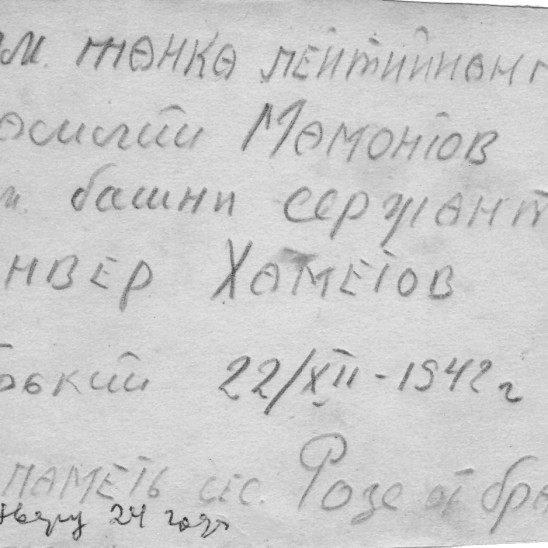 ом. танка лейтийнант
асилий Мамонтов
м. башни сержант
нвер Хаметов
рький 22/XII-1942 г
память сес. Розе от бра
нверу 24 года